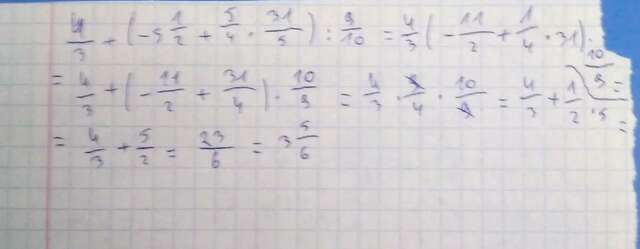 4/3 + (-5 1/2 + 5/4 · 31/5) : 9/10 = 4/3 (-11/2 + 1/4 · 31) · 10/9 =
= 4/3 + (-11/2 + 31/4) · 10/9 = 4/3 · 9/4 · 10/9 = 4/3 + 1/2 · 5 =
= 4/3 + 5/2 = 23/6 = 3 5/6